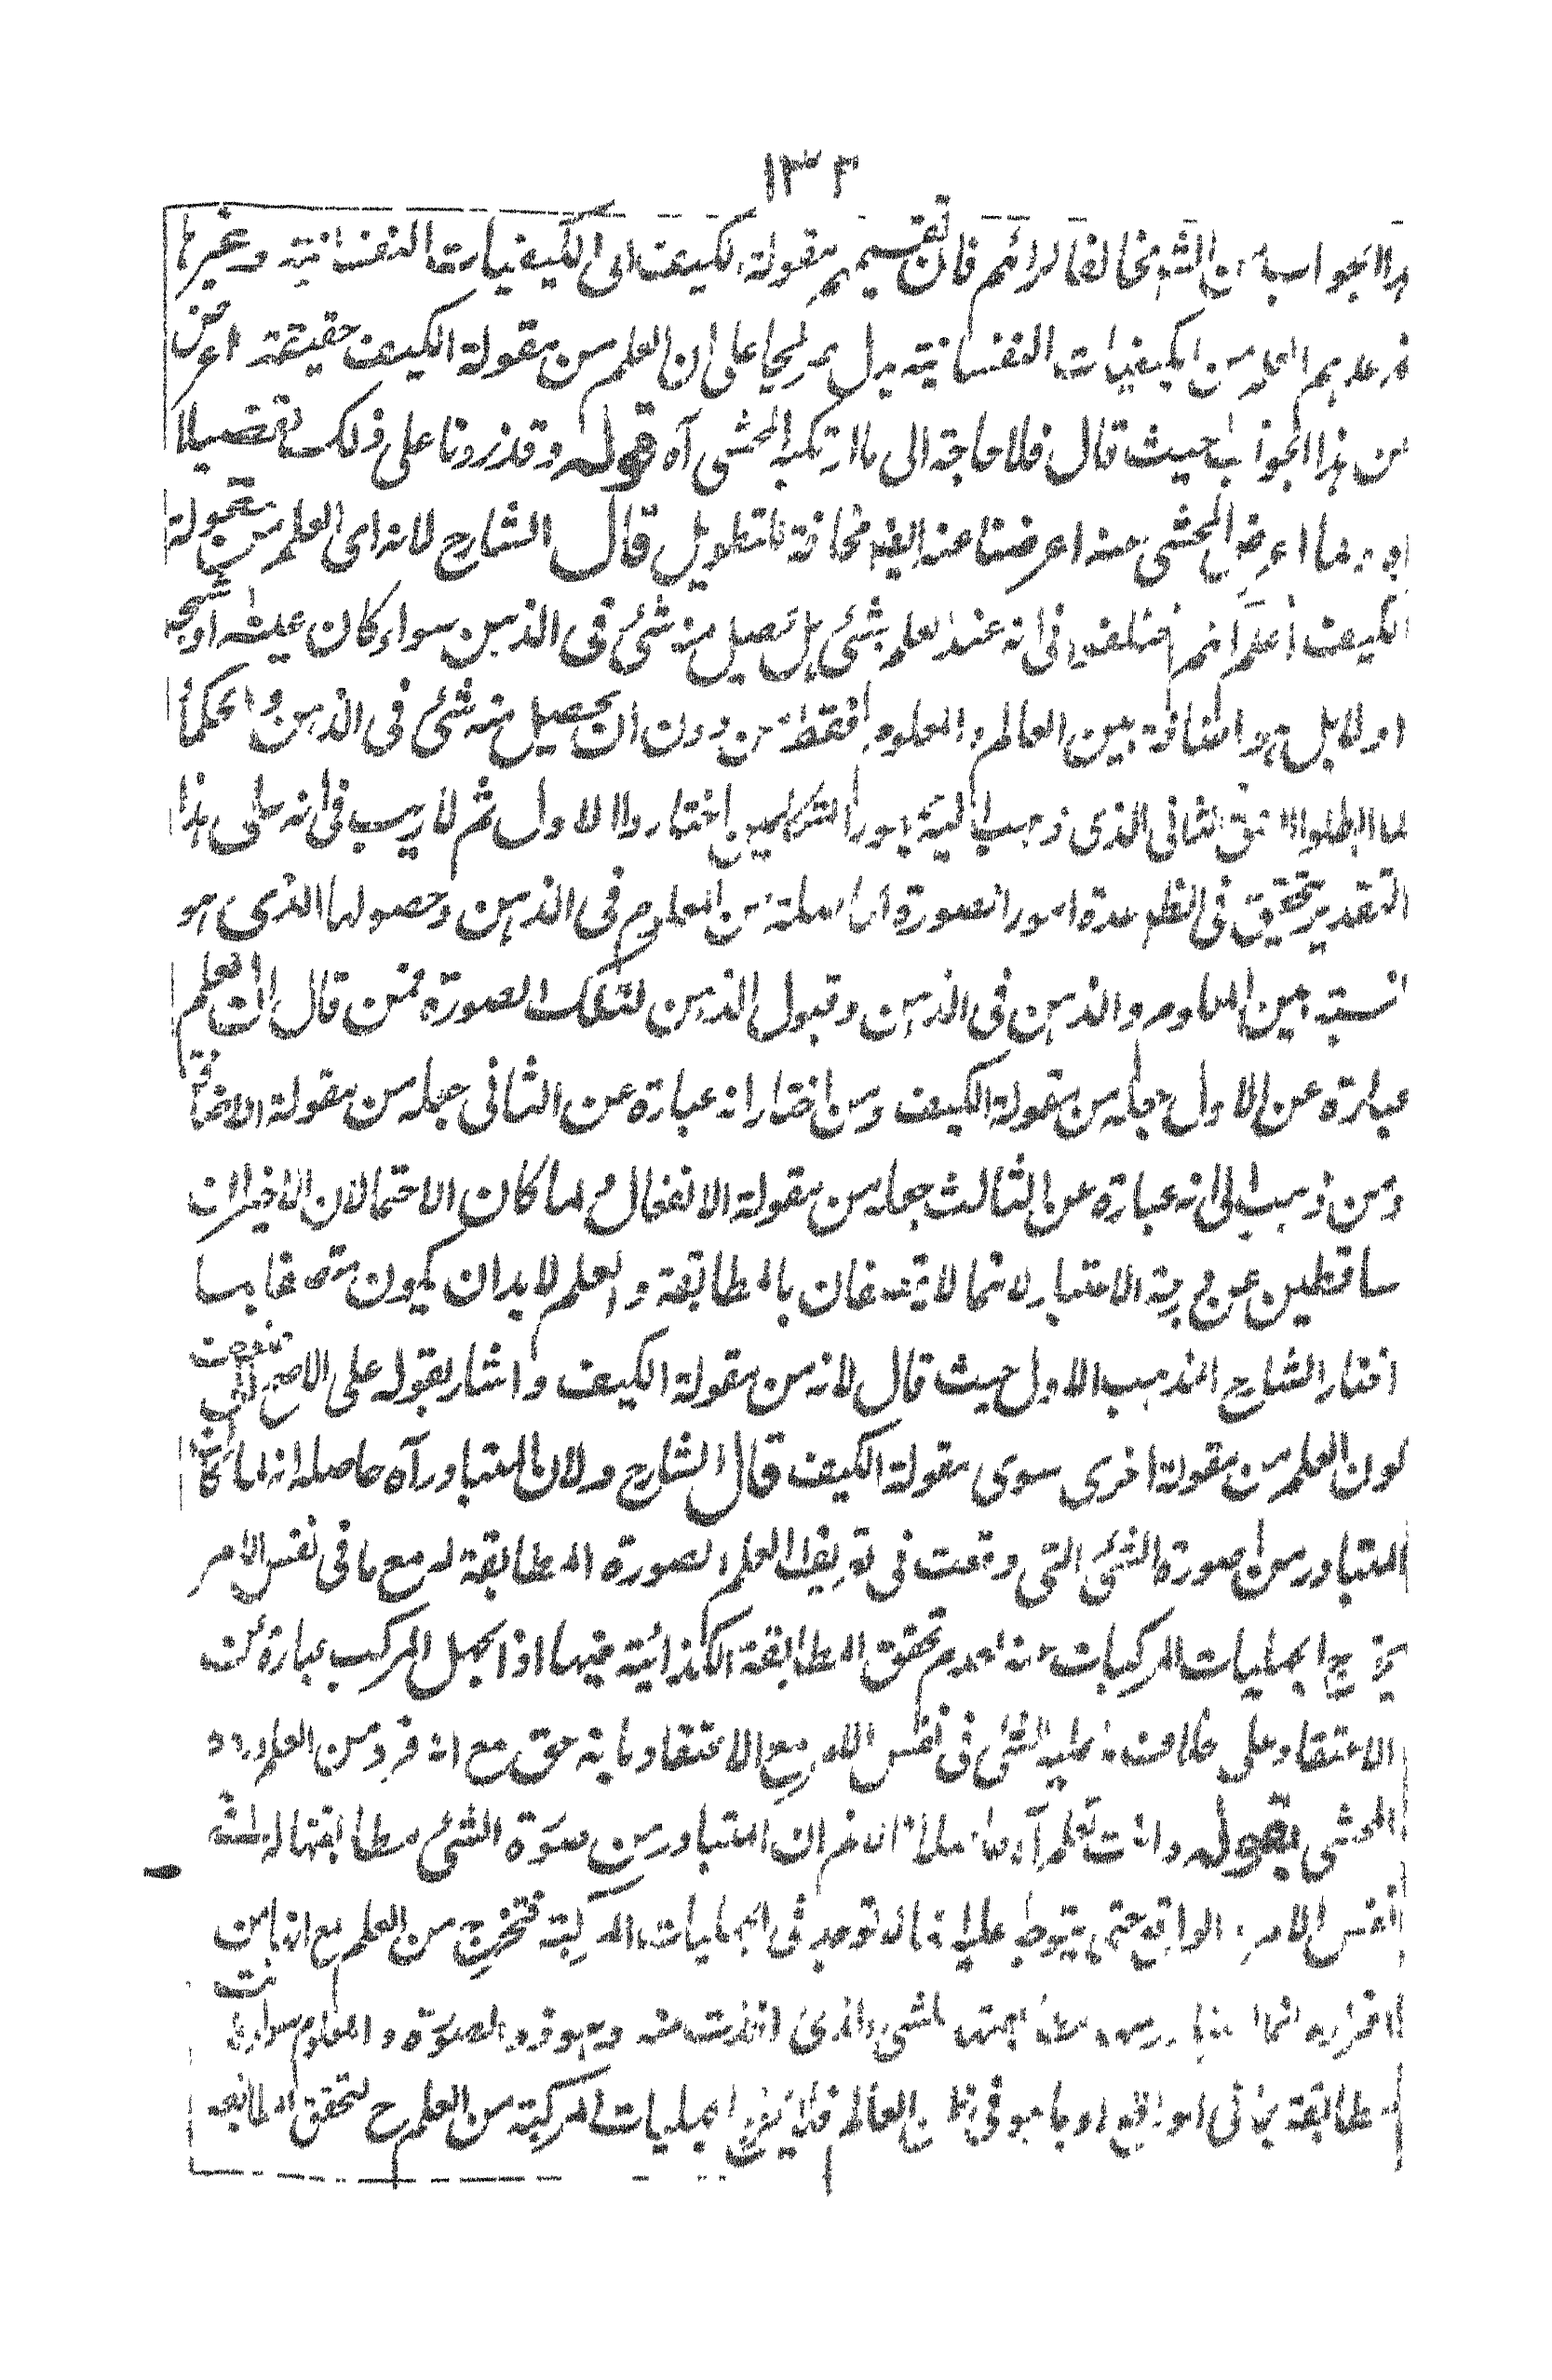 ١٣٢
الجواب من الشم مخالفا لرائهم فان تقسيمهم مقولة الكيف الى الكيفيات النفسانية وغيرها
وعدهم العلم من الكيفيات النفسانية يدل صريحا على ان العلم من مقولة الكيف حقيقة اعرض
من هذا الجواب حيث قال فلا حاجة الى ما ارتكبه المحشى آه قوله وقد زدنا على ذلك تفصيلا
اعرض المحشى عنه اعرضنا عنه ايضا مخافة للتطويل قال الشارح لانه اى العلم من مقولة
الكيف اعلم انهم اختلفوا فى انه عند العلم بشئ هل يحصل منه شئ فى الذهن سواء كان عينه او شبحه
او لا بل هو اضافة بين العالم والمعلوم فقط من دون ان يحصل منه شئ فى الذهن والحكماء
لما ابطلوا الشق الثانى الذى ذهب اليه جمهور المتكلمين اختاروا الاول ثم لا ريب فى انه على هذا
التقدير تحقق فى العلم عدة امور الصورة الحاصلة من المعلوم فى الذهن وحصولها الذى هو
نسبة بين المعلوم والذهن فى الذهن وقبول الذهن لتلك الصورة فمن قال ان العلم
عبارة عن الاول جعله من مقولة الكيف ومن اختار انه عبارة عن الثانى جعله من مقولة الاضافة
ومن ذهب الى انه عبارة عن الثالث جعله من مقولة الانفعال ولما كان الاحتمالان الاخيران
ساقطين عن درجة الاعتبار لانهما لا يتصفان بالمطابقة والعلم لابد ان يكون متصفا بها
اختار الشارح المذهب الاول حيث قال لانه من مقولة الكيف واشار بقوله على الاصح الى ضعف
كون العلم من مقولة اخرى سوى مقولة الكيف قال الشارح ولان المتبادر آه حاصله انه لما كان
المتبادر من صورة الشئ التى وقعت فى تعريف العلم الصورة المطابقة له مع ما فى نفس الامر
يخرج الجهليات المركبات عنه لعدم تحقق المطابقة الكذائية فيها اذ الجهل المركب عبارة عن
الاعتقاد على خلاف ما عليه الشئ فى نفس الامر مع الاعتقاد بانه حق مع انه فرد من العلم ورده
المحشى بقوله وانت تعلم آه بانا لا نم ان المتبادر من صورة الشئ مطابقتها له فى
نفس الامر الواقع حتى توجد فى الجهليات المركبة فتخرج من العلم مع انها من
افراده انما للشئ الذى اتخذت منه وهو ذو الصورة والمعلوم سواء كانت
مطابقة لما فى الواقع او بما هو فى العالم فلا يخرج الجهليات المركبة من العلم ح لتحقق المطابقة